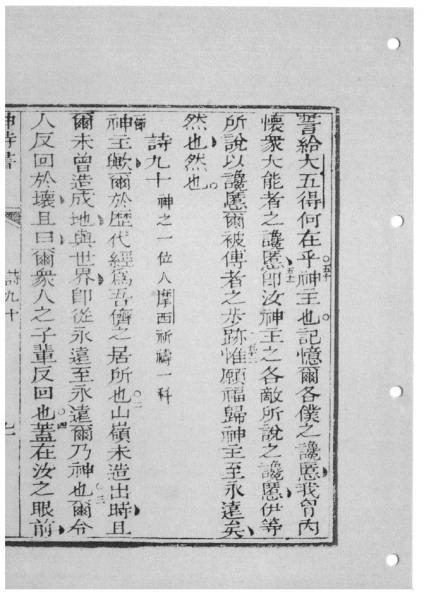 誓給大五得何在乎神主也記憶爾各僕之讒慝我胷內
五十
懷衆大能者之讒慝卽汝神主之各敵所說之讒慝伊等
五十一
所說以讒慝爾被傅者之步跡惟願福歸神主至永遠矣
五十二
然也然也
詩九十 神之一位人摩西祈禱一科
神主歟爾於歷代經爲吾儕之居所也山嶺未造出時且
第一節
二
爾未曾造成地與世界卽從永遠至永遠爾乃神也爾令
三
人反回於壞且曰爾衆人之子輩反回也蓋在汝之眼前
四
神詩書
詩九十